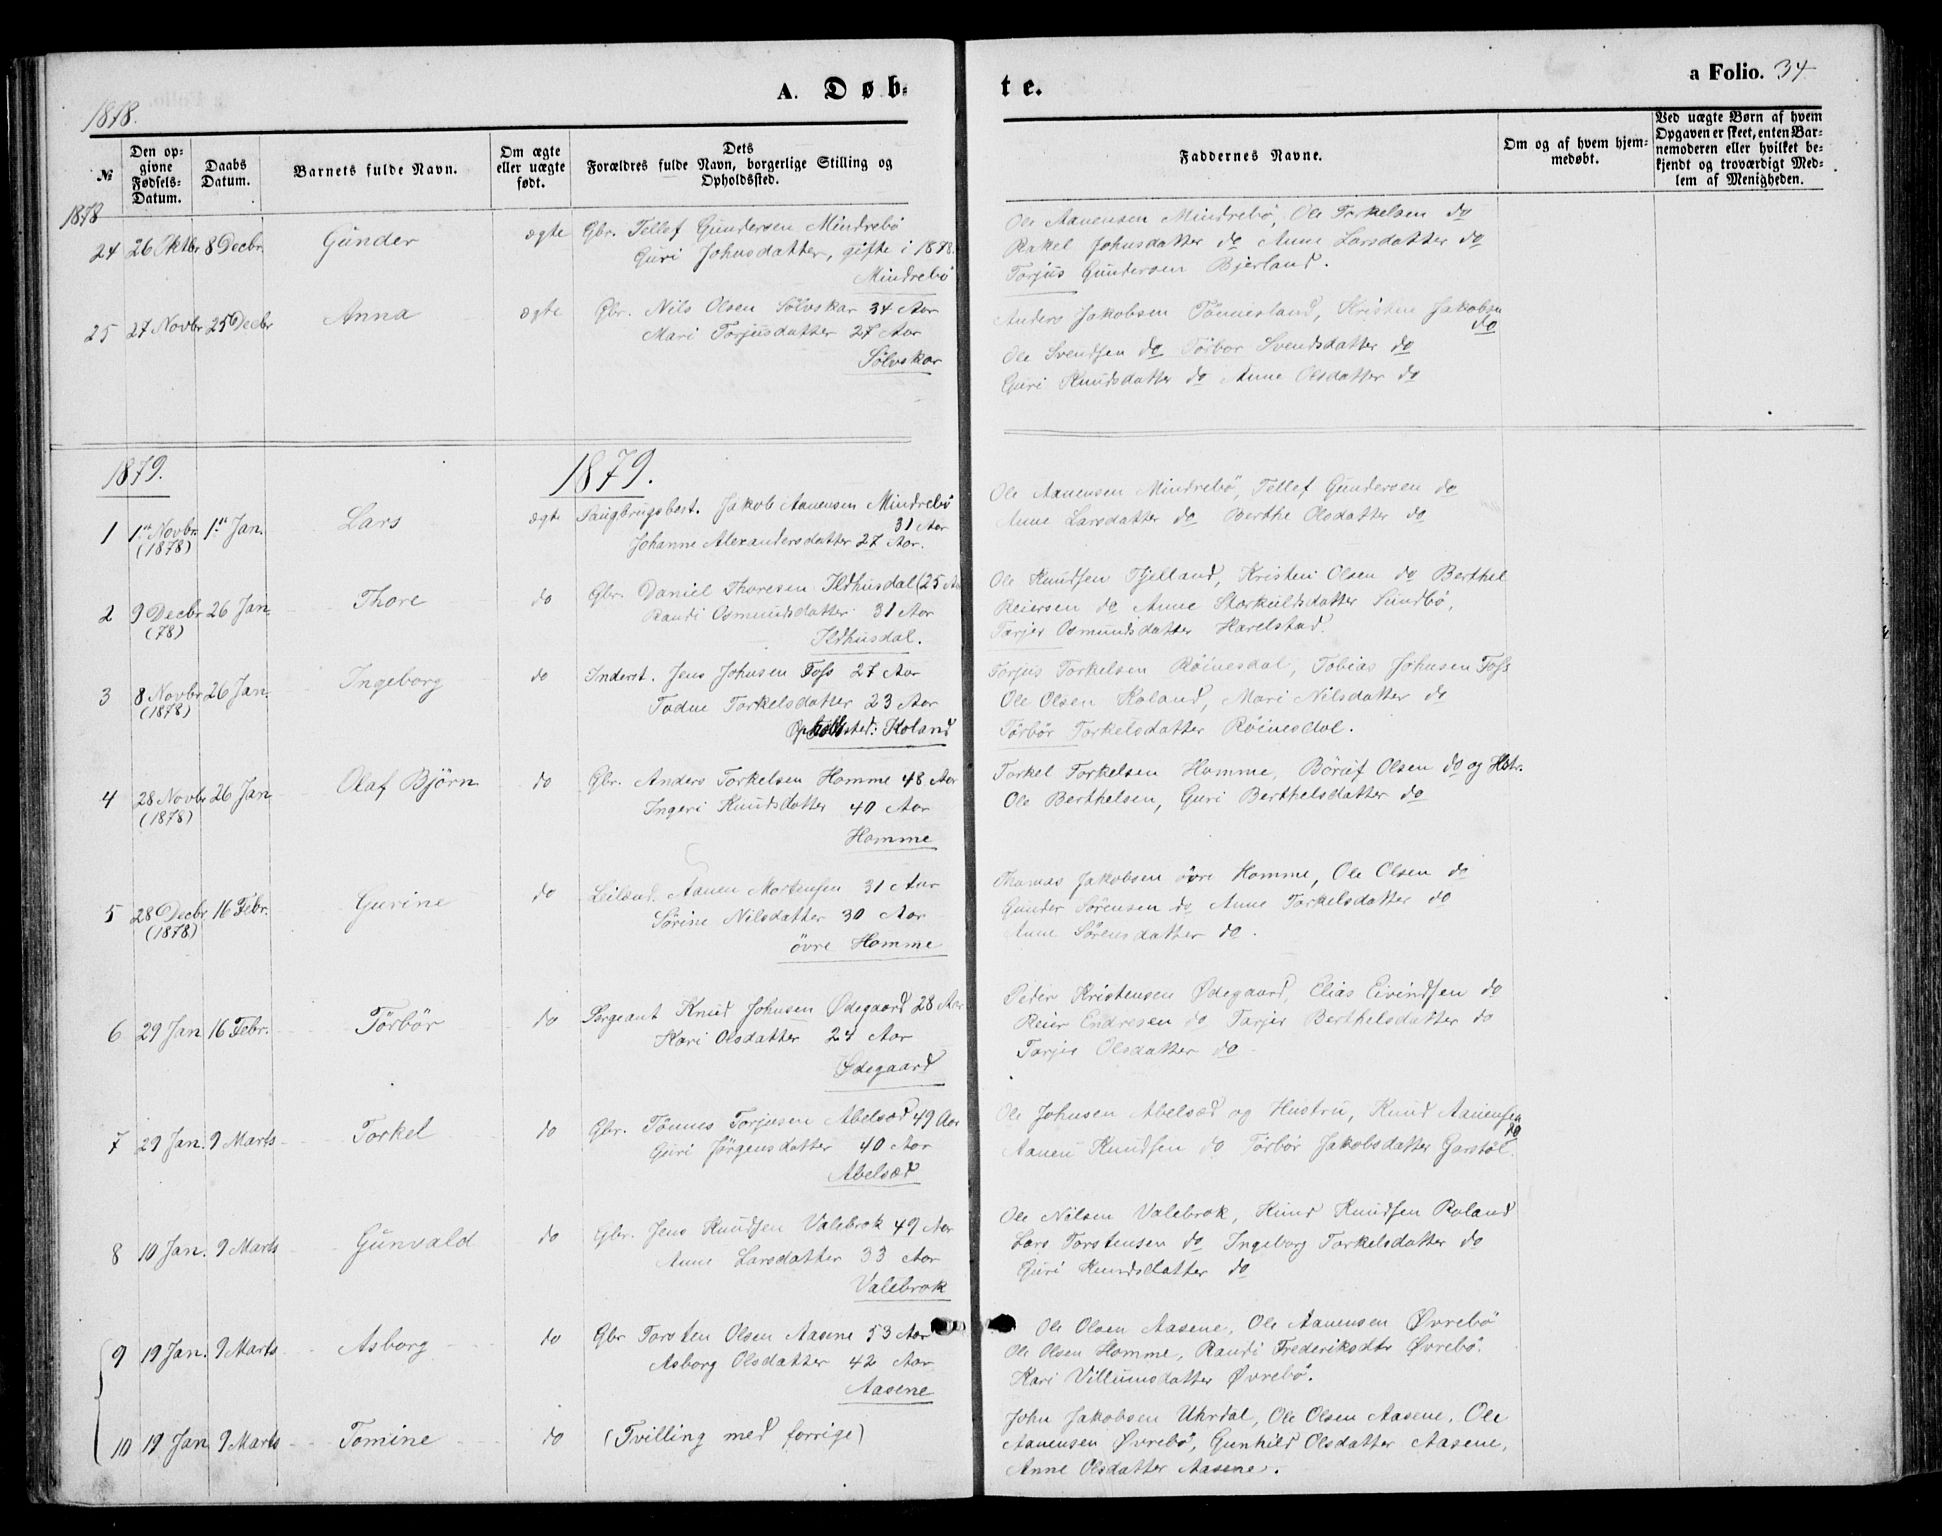 A. Døb-
te.
a Folio. 34
1878.
№
Den opgivne Fødsels-Datum.
Daabs Datum.
Barnets fulde Navn.
Om ægte eller uægte født.
Dets Forældres fulde Navn, borgerlige Stilling og Opholdssted.
Faddernes Navne.
Om og af hvem hjemmedøbt.
Ved uægte Børn af hvem Opgaven er skeet, enten Barnemoderen eller hvilket bekjendt og troværdigt Medlem af Menigheden.
1878
24 26 Oktbr 8 Decbr. Gunder ægte Gbr. Tellef Gundersen Mindrebö
Guri Johnsdatter, gifte i 1878.
Mindrebö
Ole Aanensen Mindrebö, Ole Torkelsen do
Rakel Johnsdatter do Anne Larsdatter do
Torjus Gundersen Bjerland.
25 27 Novbr 25 Decbr Anna ægte Gbr. Nils Olsen Sölvskar 34 Aar
Mari Torjusdatter 27 Aar
Sölvskar
Anders Jakobsen Tönnesland, Kristine Jakobsn
do
Ole Svendsen do Törbor Svendsdatter do
Guri Knudsdatter do Anne Olsdatter do
1879. 1879.
1 1ste Novbr. 1ste Jan. Lars ægte Saugbrugsbest. Jakob Aanensen Mindrebö
(1878) 31 Aar
Johanne Alexandersdatter 27 Aar.
Ole Aanensen Mindrebö, Tellef Gundersen do
Anne Larsdatter do Berthe Olsdatter do
2 9 Decbr 26 Jan. Thore do Gbr. Daniel Thoresen Ildhusdal (25 Aar
(78) Randi Osmundsdatter 31 Aar
Ildhusdal.
Ole Knudsen Fjelland, Kristen Olsen do Berthel
Reiersen do Anne Starkulsdatter Sundbö,
Tarjer Osmundsdatter Harelstad.
3 8 Novbr 26 Jan. Ingeborg do Inderst. Jens Johnsen Foss 27 Aar
(1878) Todne Torkelsdatter 23 Aar
Opholdssted: Roland
Torjus Torkelsen Röinesdal, Tobias Johnsen Foss
Ole Olsen Roland, Mari Nilsdatter do
Törbör Torkelsdatter Röinesdal.
4 28 Novbr 26 Jan Olaf Björn do Gbr. Anders Torkelsen Homme 48 Aar
(1878) Ingeri Knudsdatter 40 Aar
Homme
Torkel Torkelsen Homme, Böruf Olsen do og Hstr.
Ole Berthelsen, Guri Berthelsdatter do
5 28 Decbr 16 Febr. Gurine do Leilænd. Aanen Mortensen 31 Aar
(1878) Sörine Nilsdatter 30 Aar
övre Homme
Thomas Jakobsen övre Homme, Ole Olsen do
Gunder Sörensen do Anne Torkelsdatter do
Anne Sörensdatter do.
6 29 Jan 16 Febr. Törbör do Sergeant Knud Johnsen Ødegaard 28 Aar
Kari Olsdatter 24 Aar
Ødegaard
Peder Kristensen Ødegaard, Elias Eivindsen do
Reier Endresen do Tarjer Berthelsdatter do
Tarjer Olsdatter do
7 29 Jan. 9 Marts Torkel do Gbr. Tönnes Torjusen Abelsæd 49 Aar
Guri Jörgensdatter 40 Aar
Abelsæd
Ole Johnsen Abelsæd og Hustru, Knud Aanensen
do
Aanen Knudsen do Törbör Jakobsdatter Garstöl.
8 10 Jan. 9 Marts Gunvald do Gbr. Jens Knudsen Valebrok 49 Aar
Anne Larsdatter 33 Aar
Valebrok
Ole Nilsen Valebrok, Knud Knudsen Roland
Lars Torstensen do Ingeborg Torkelsdatter do
Guri Knudsdatter do
9 19 Jan. 9 Marts Asborg do Gbr Torsten Olsen Aasene 53 Aar
Asborg Olsdatter 42 Aar
Aasene
Ole Olsen Aasene, Ole Aanensen Øvrebö
Ole Olsen Homme, Randi Frederiksdtr Øvrebö.
Kari Villumsdatter Øvrebö.
10 19 Jan 9 Marts Tomine do (Tvilling med forrige)
John Jakobsen Uhrdal, Ole Olsen Aasene, Ole
Aanensen Øvrebö, Gunhild Olsdatter Aasene,
Anne Olsdatter Aasene.